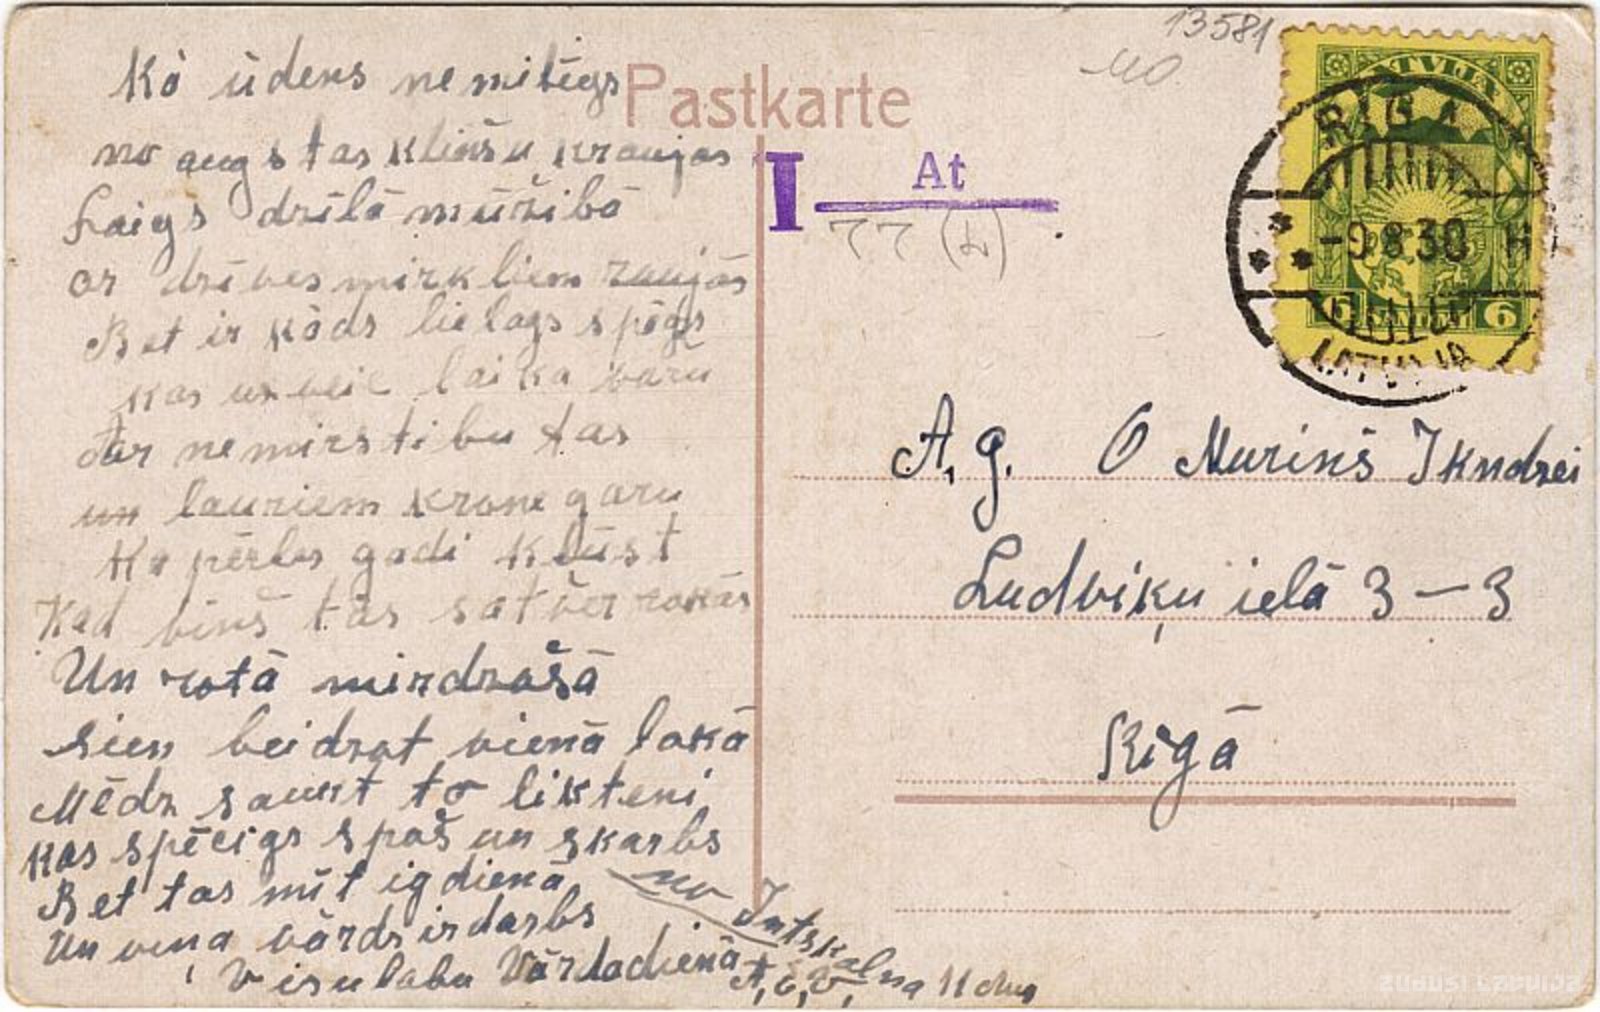 Kō ūdens nemitēgs
no augstas klinšu kraujas
Laigs drīlā mūžibā
ar drīves mirkliem raujās
Bet ir kāds lielags spēgs
kas un veic laika varu
dar nemirstibu tas
un lauriem krone garu
Ka pērles gadi kļūst
Kad viņš tās satver rokās
Un rotā mirdzošā
sien beidzot vienā lokā
Mēdz saukt to likteni
Kas spēcigs spašs un skarbs
Bet tas mīt igdienā
Un viņa vārds ir darbs
Visu labu Vārdadienā
no Intskalna
A, E, V,
Pastkarte
13581
40
I At
77 (L)
LATVIJA
RIGA
-9.8.30 H
6 SANTIMI 6
LATVIJA
A, g. O Muriņš
Ludviķu ielā 3-3
Rīgā
ZUDUSI LATVIJA